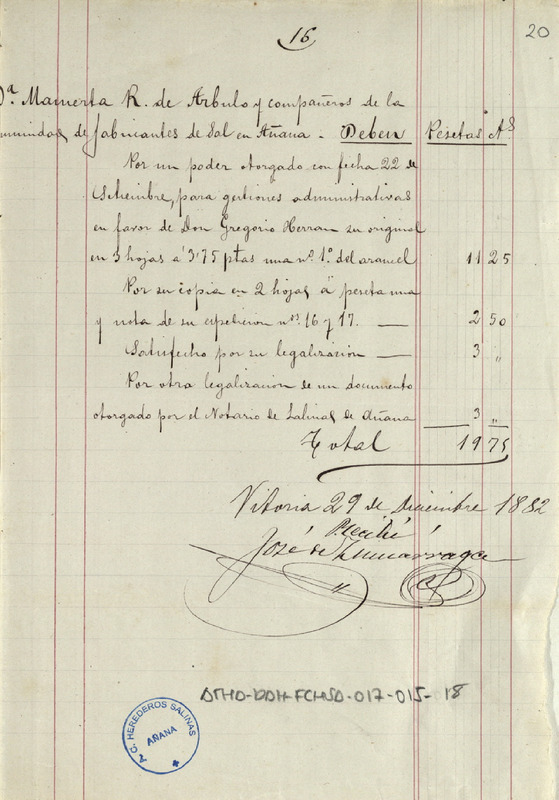 16
20
Dª Mamerta R. de Arbulo y compañeros de la
munidad de fabricantes de Sal en Añana - Deben Pesetas Cs
Por un poder otorgado con fecha 22 de
Setiembre, para gestiones administrativas
en favor de Don Gregorio Herran su original
en 3 hojas á 3'75 ptas una nº 1º del arancel 11 25
Por su copia en 2 hojas á peseta una
y nota de su espedicion nos 16 y 17. — 2 50
Satisfecho por su legalizacion — 3 "
Por otra legalizacion de un documento
otorgado por el Notario de Salinas de Añana 3 "
Total 19 75
Vitoria 29 de Diciembre 1882
Recibí
José de Zumarraga
ATHO-DAH-FCHSA-017-015-18
C. HEREDEROS SALINAS
AÑANA